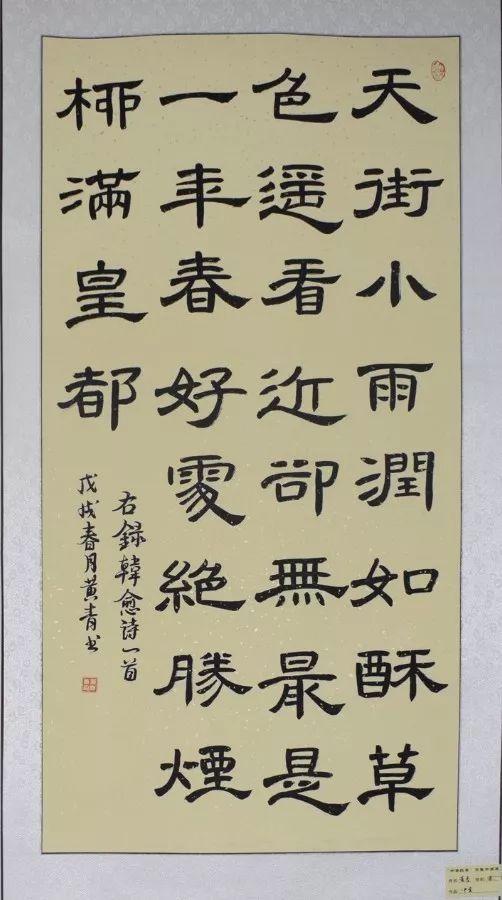 天街小雨潤如酥草
色遥看近卻無最是
一年春好處絶勝煙
栁滿皇都
右録韓愈诗一首
戊戌春月黄青书